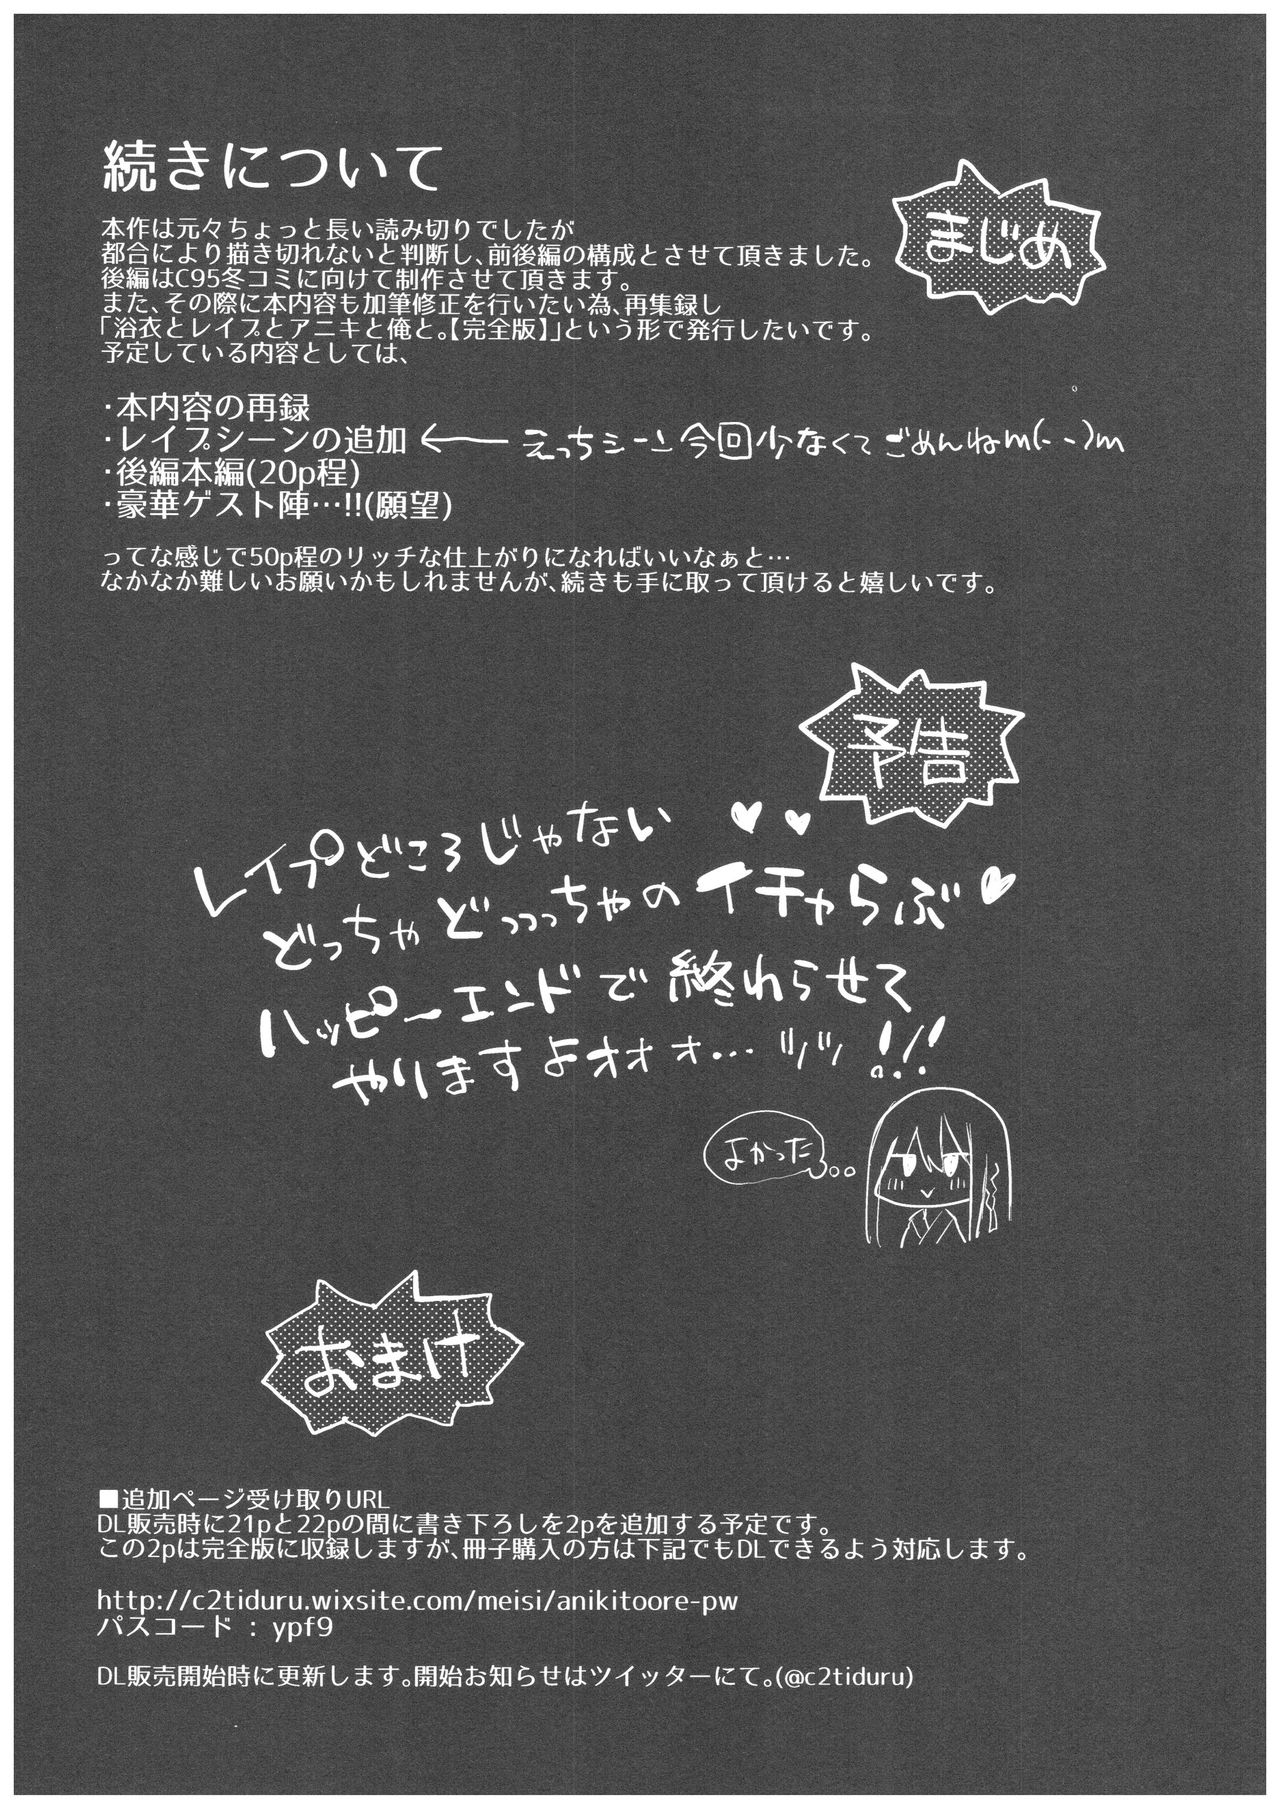 続きについて
まじめ
本作は元々ちょっと長い読み切りでしたが
都合により描き切れないと判断し、前後編の構成とさせて頂きました。
後編はC95冬コミに向けて制作させて頂きます。
また、その際に本内容も加筆修正を行いたい為、再集録し
「浴衣とレイプとアニキと俺と。【完全版】」という形で発行したいです。
予定している内容としては、
・本内容の再録
・レイプシーンの追加 ← えっちシーン今回少なくてごめんねm(- -)m
・後編本編(20p程)
・豪華ゲスト陣…!!(願望)
ってな感じで50p程のリッチな仕上がりになればいいなぁと…
なかなか難しいお願いかもしれませんが、続きも手に取って頂けると嬉しいです。
予告
レイプどころじゃない♥♥
どっちゃどっっっちゃのイチャらぶ♥
ハッピーエンドで終わらせて
やりますよオォォ…ッッ!!
よかった
おまけ
■追加ページ受け取りURL
DL販売時に21pと22pの間に書き下ろしを2pを追加する予定です。
この2pは完全版に収録しますが、冊子購入の方は下記でもDLできるよう対応します。
http://c2tiduru.wixsite.com/meisi/anikitoore-pw
パスコード : ypf9
DL販売開始時に更新します。開始お知らせはツイッターにて。(@c2tiduru)